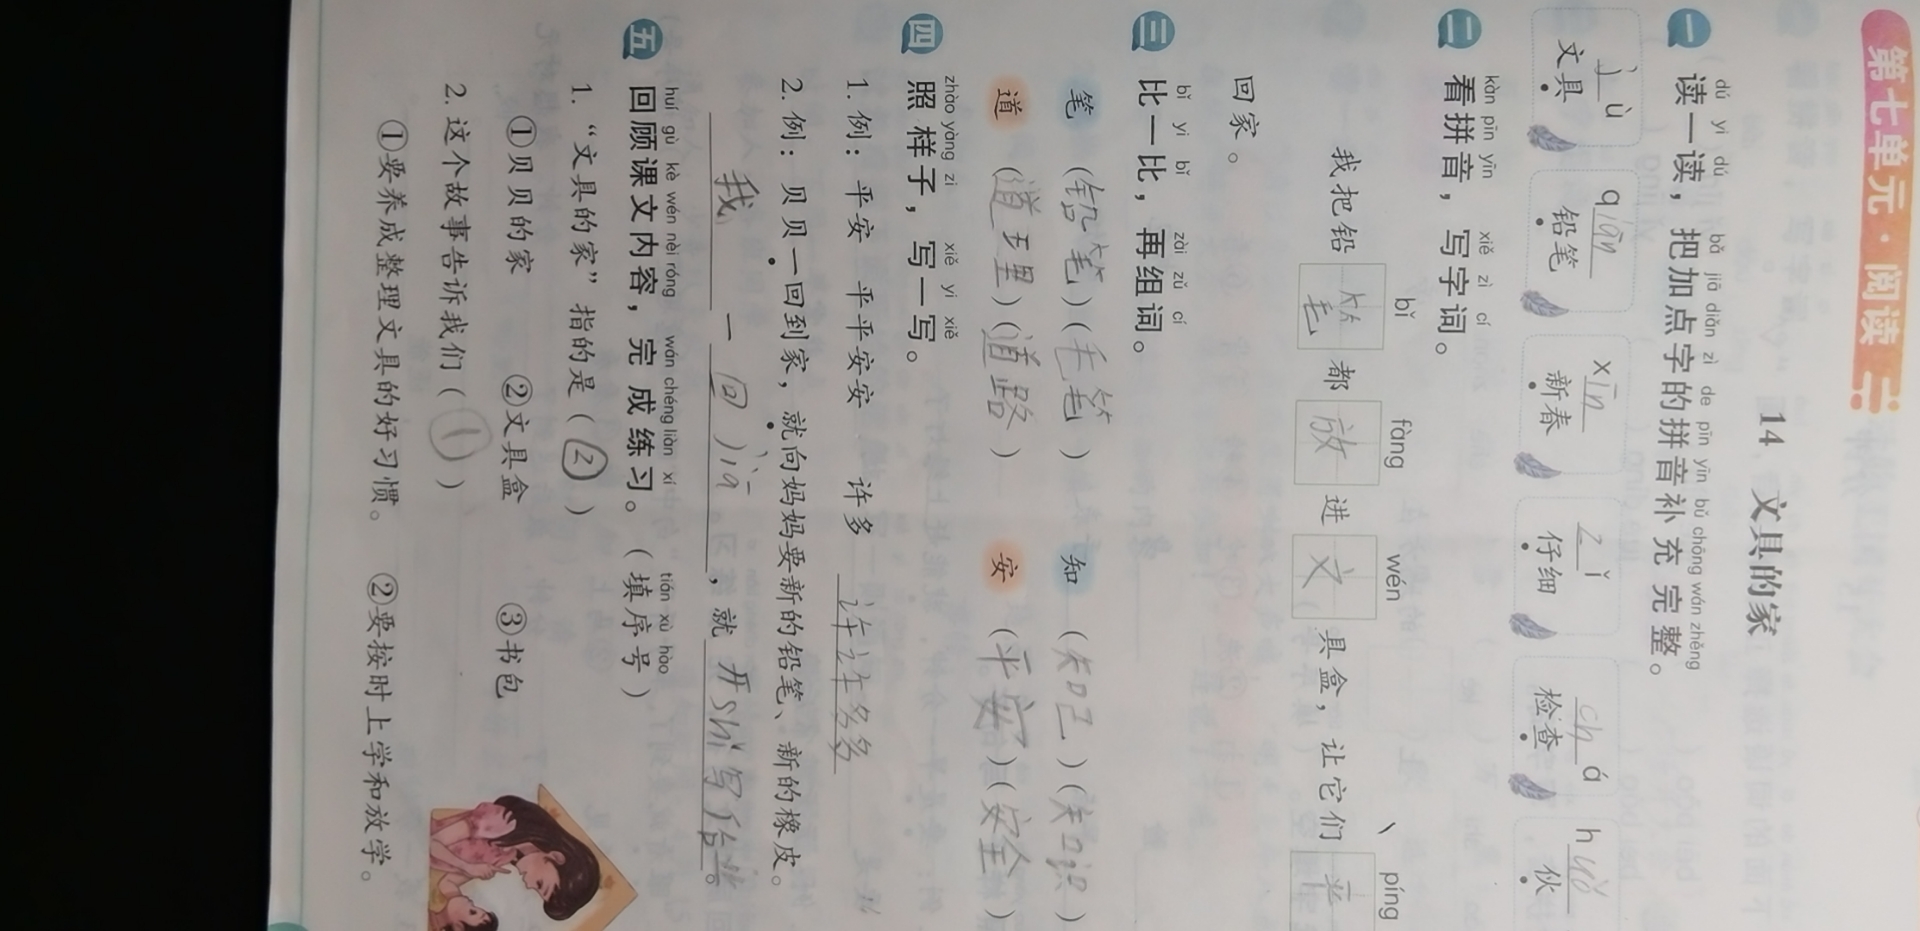 第七单元·阅读三
14 文具的家
dú yi dú bǎ jiā diǎn zì de pīn yīn bǔ chōng wán zhěng
一 读一读，把加点字的拼音补充完整。
jù qiān xīn zǐ chá huǒ
文具 铅笔 新春 仔细 检查 伙
kàn pīn yīn xiě zì cí
二 看拼音，写字词。
bǐ fàng wén píng
我把铅笔都放进文具盒，让它们平
回家。
bǐ yi bǐ zài zǔ cí
三 比一比，再组词。
笔（铅笔）（毛笔） 知（知己）（知识）
道（道理）（道路） 安（平安）（安全）
zhào yàng zi xiě yi xiě
四 照样子，写一写。
1. 例：平安 平平安安 许多 许许多多
2. 例：贝贝一回到家，就向妈妈要新的铅笔、新的橡皮。
我一回jiā，就开shǐ写作业。
huí gù kè wén nèi róng wán chéng liàn xí tián xù hào
五 回顾课文内容，完成练习。（填序号）
1. “文具的家”指的是（②）
①贝贝的家 ②文具盒 ③书包
2. 这个故事告诉我们（①）
①要养成整理文具的好习惯。 ②要按时上学和放学。